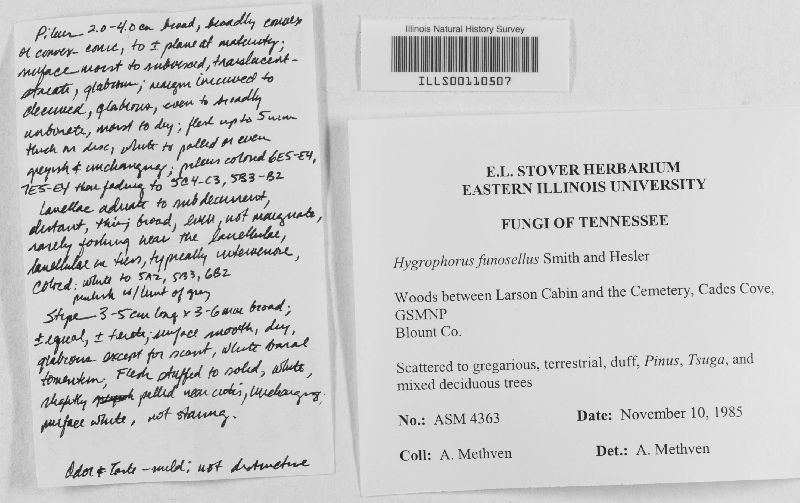 Pileus 2.0-4.0 cm broad, broadly convex
or convex-conic, to ± plane at maturity;
surface moist to subviscid, translucent-
striate, glabrous; margin incurved to
decurved, glabrous, even to broadly
undulate, moist to dry; flesh up to 5 mm
thick on disc, white to pallid or even
greyish & unchanging; pileus colored 6E5-E4,
7E5-E4 then fading to 5C4-C3, 5B3-B2
Lamellae adnate to subdecurrent,
distant, thin, broad, even, not marginate,
rarely forking near the lamellulae,
lamellulae in tiers, typically intervenose,
colored: white to 5A2, 5B3, 6B2
pinkish w/ hint of grey
Stipe 3-5 cm long x 3-6 mm broad;
± equal, ± terete; surface smooth, dry,
glabrous except for scant, white basal
tomentum, Flesh stuffed to solid, white,
slightly pallid near cutis, unchanging;
surface white, not staining.
Odor & Taste - mild; not distinctive
Illinois Natural History Survey
ILLS00110507
E.L. STOVER HERBARIUM
EASTERN ILLINOIS UNIVERSITY
FUNGI OF TENNESSEE
Hygrophorus funosellus Smith and Hesler
Woods between Larson Cabin and the Cemetery, Cades Cove,
GSMNP
Blount Co.
Scattered to gregarious, terrestrial, duff, Pinus, Tsuga, and
mixed deciduous trees
No.: ASM 4363 Date: November 10, 1985
Coll: A. Methven Det.: A. Methven